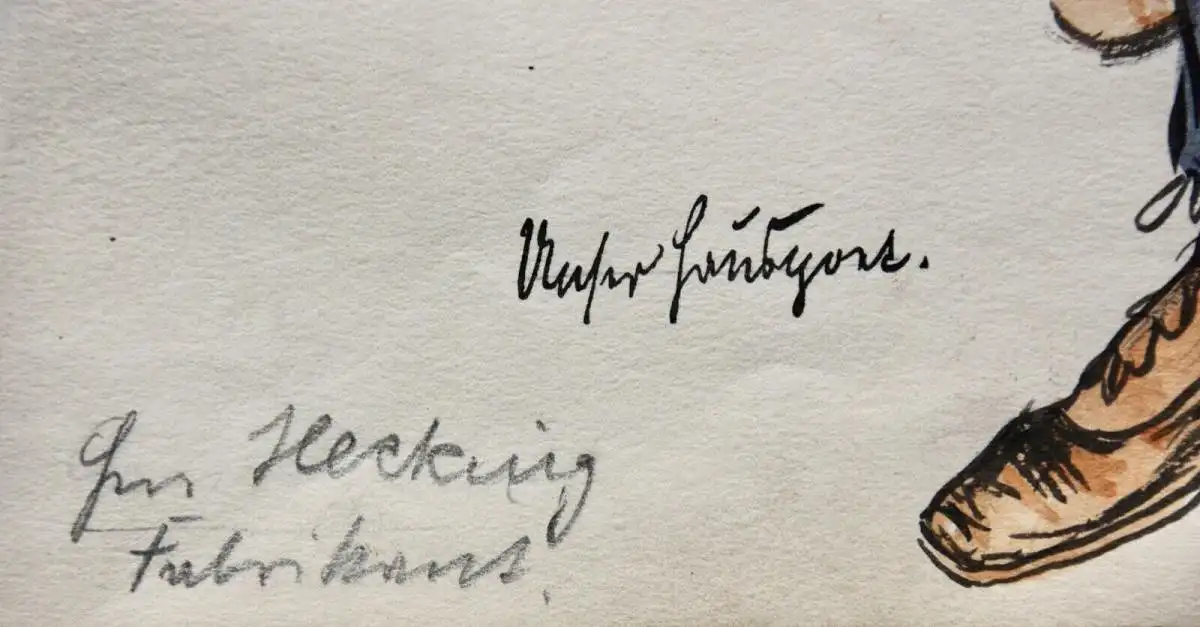 Unser Hauspoet.
Herr Hecking
Fabrikant